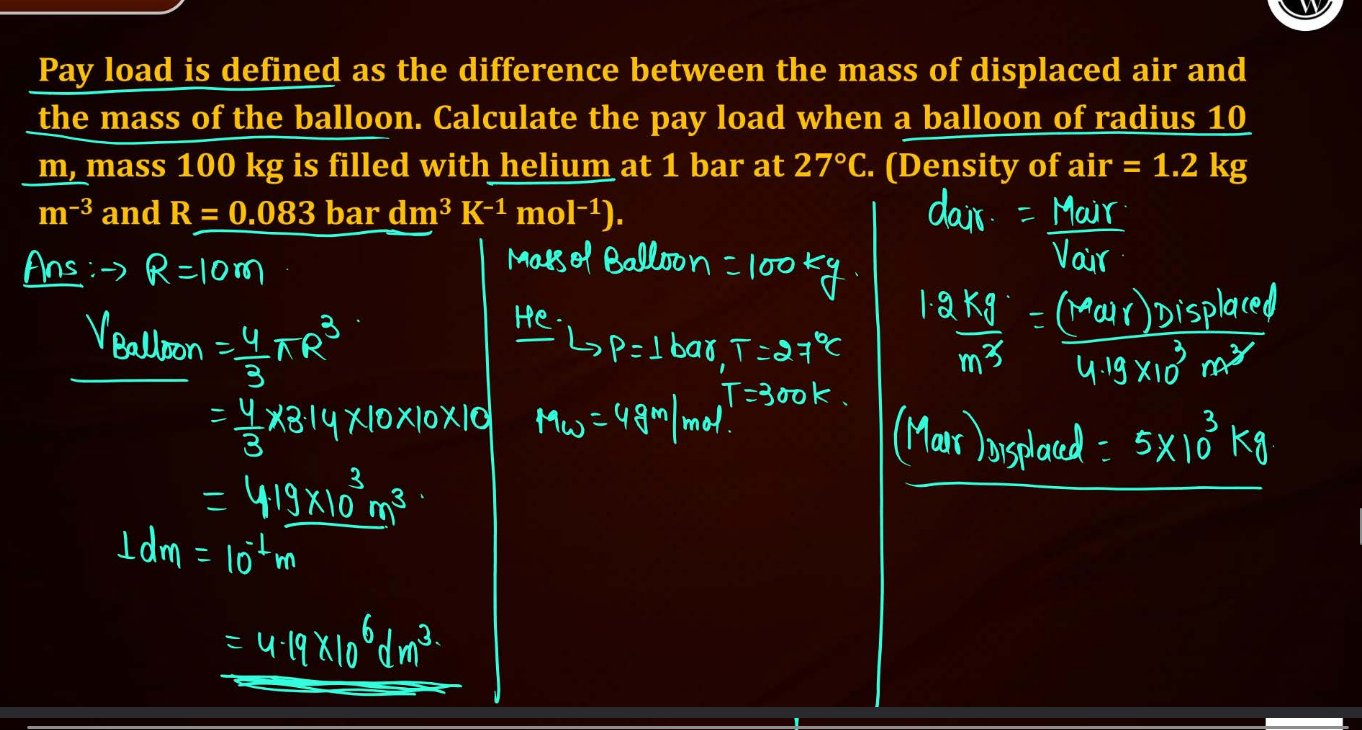 W
Pay load is defined as the difference between the mass of displaced air and
the mass of the balloon. Calculate the pay load when a balloon of radius 10
m, mass 100 kg is filled with helium at 1 bar at 27°C. (Density of air = 1.2 kg
m⁻³ and R = 0.083 bar dm³ K⁻¹ mol⁻¹).
Ans :→ R = 10m
V Balloon = 4/3 πR³
= 4/3 × 3.14 × 10 × 10 × 10
= 4.19 × 10³ m³.
1dm = 10⁻¹ m
= 4.19 × 10⁶ dm³.
Mass of Balloon = 100 kg.
He. ↳ P = 1 bar, T = 27°C
T = 300k.
Mw = 4gm/mol.
dair. = Mair. / Vair.
1.2 Kg / m³ = (Mair) Displaced / 4.19 × 10³ m³
(Mair) Displaced = 5 × 10³ Kg.